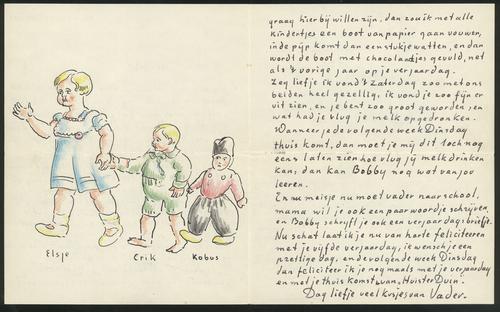 Elsje
Crik
Kobus
graag hier bij willen zijn, dan zou ik met alle
kindertjes een boot van papier gaan vouwen,
in de pijp komt dan een stukje watten, en dan
wordt de boot met chocolaadjes gevuld, net
als 't vorige jaar op je verjaardag.
Zeg liefje ik vond 't Zaterdag zoo met ons
beiden heel gezellig, ik vond je zoo fijn er
uit zien, en je bent zoo groot geworden, en
wat had je vlug je melk opgedronken.
Wanneer je de volgende week Dinsdag
thuis komt, dan moet je mij dit toch nog
eens laten zien hoe vlug jij melk drinken
kan; dan kan Bobby nog wat van jou
leeren.
En nu meisje nu moet vader naar school,
mama wil je ook een paar woordje schrijven,
en Bobby schrijft je ook een verjaardagsbriefje.
Nu schat laat ik je nu van harte feliciteeren
met je vijfde verjaardag, ik wensch je een
prettige dag, en de volgende week Dinsdag
dan feliciteer ik je nog maals met je verjaardag
en met je thuis komst van "Huis ter Duin".
Dag liefje veel kusjes van Vader.